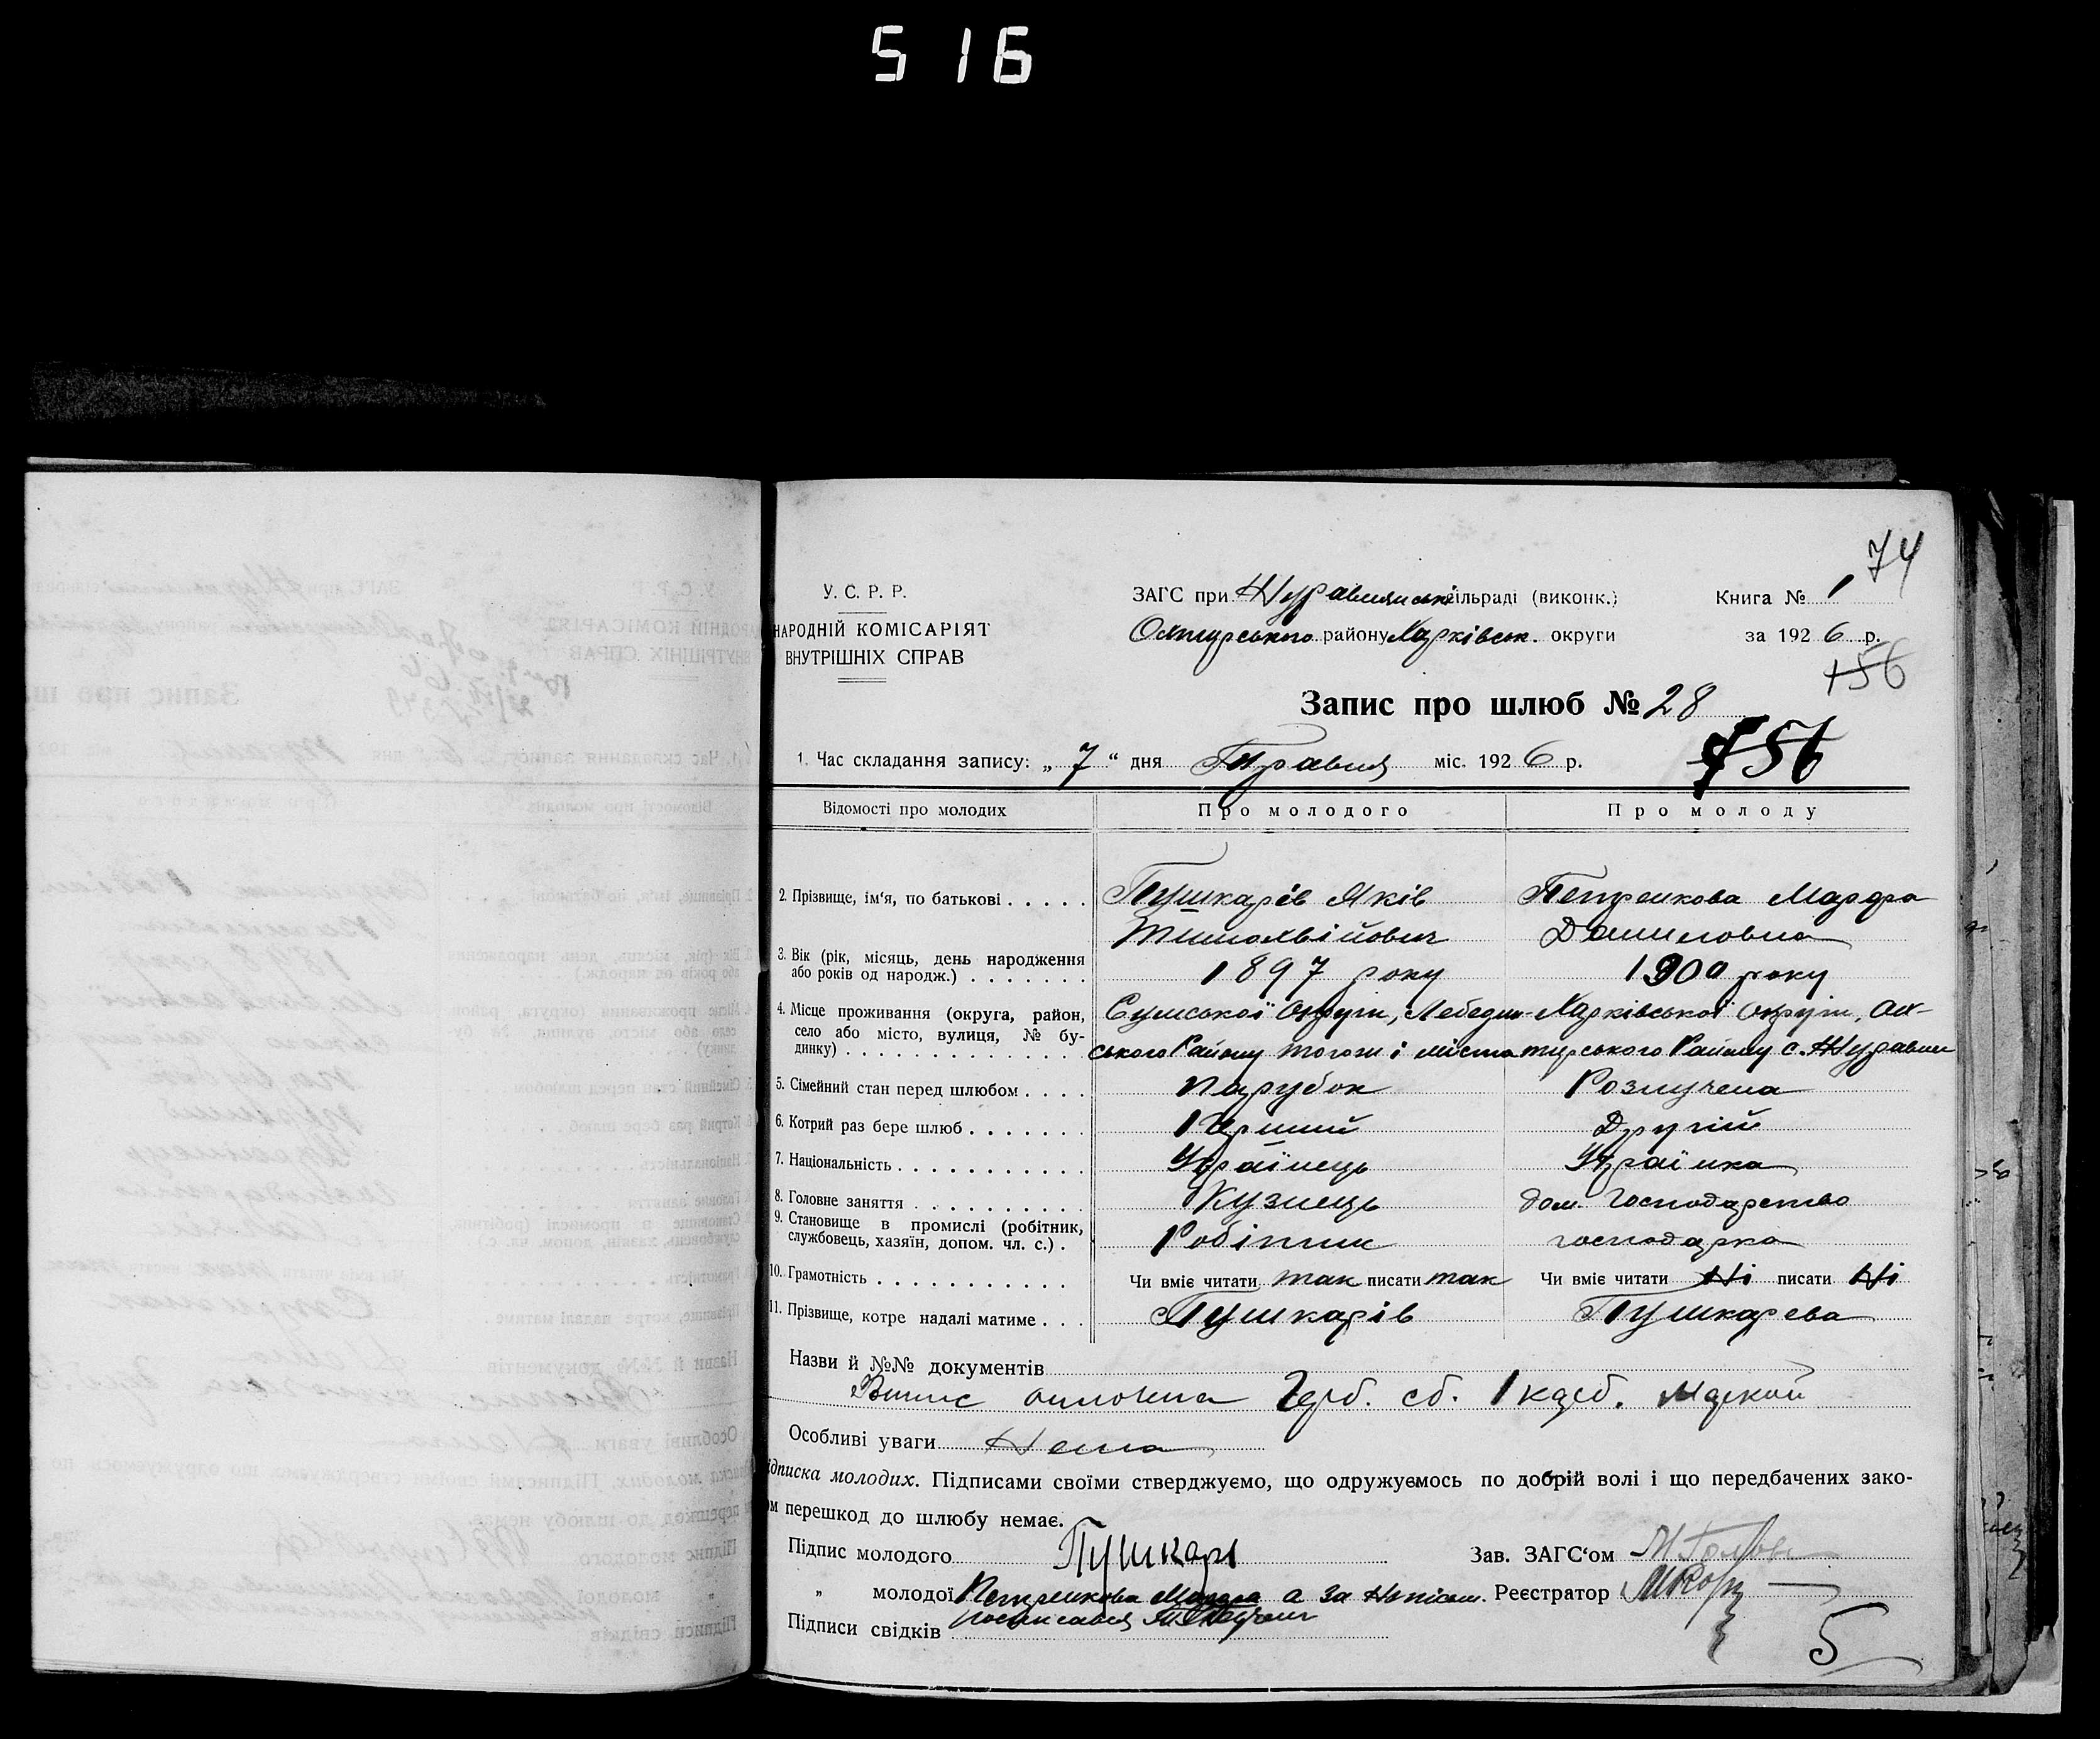 5 16
74
У. С. Р. Р.
НАРОДНІЙ КОМІСАРІЯТ
ВНУТРІШНІХ СПРАВ
ЗАГС при Журавлинській сільраді (виконк.)
Охтирського району Харківськ. округи
Книга № 1
за 1926 р.
156
Запис про шлюб № 28
1. Час складання запису: „7“ дня Травня міс. 1926 р.
756
Відомості про молодих Про молодого Про молоду
2. Прізвище, ім‘я, по батькові . . . . . Пушкарів Яків Петренкова Марфа
Тимохвійович Даниловна
3. Вік (рік, місяць, день народження
або років од народж.) . . . . . . . 1897 року 1900 року
4. Місце проживання (округа, район,
село або місто, вулиця, № бу-
динку) . . . . . . . . . . . . . .
Сумської Округи, Лебедин- Харківської Округи, Ох-
ського Району того ж і міста тирського Району с. Журавни
5. Сімейний стан перед шлюбом . . . . парубок Розлучена
6. Котрий раз бере шлюб . . . . . . . Перший Другий
7. Національність . . . . . . . . . . . Українець Українка
8. Головне заняття . . . . . . . . . . Кузнець дом. господарство
9. Становище в промислі (робітник,
службовець, хазяїн, допом. чл. с.) . Робітник господарка
10. Грамотність . . . . . . . . . . . Чи вміє читати так писати так Чи вміє читати Ні писати Ні
11. Прізвище, котре надалі матиме . . . Пушкарів Пушкарева
Назви й №№ документів
Випис оплочена Герб. сб. 1 карб. маркой
Особливі уваги Нема
ідписка молодих. Підписами своїми стверджуємо, що одружуємось по добрій волі і що передбачених зако-
ом перешкод до шлюбу немає.
Підпис молодого Пушкарь Зав. ЗАГС‘ом
„ молодої Петренкова Марфа а за Непісьм. Реєстратор
Підписи свідків росписався
5